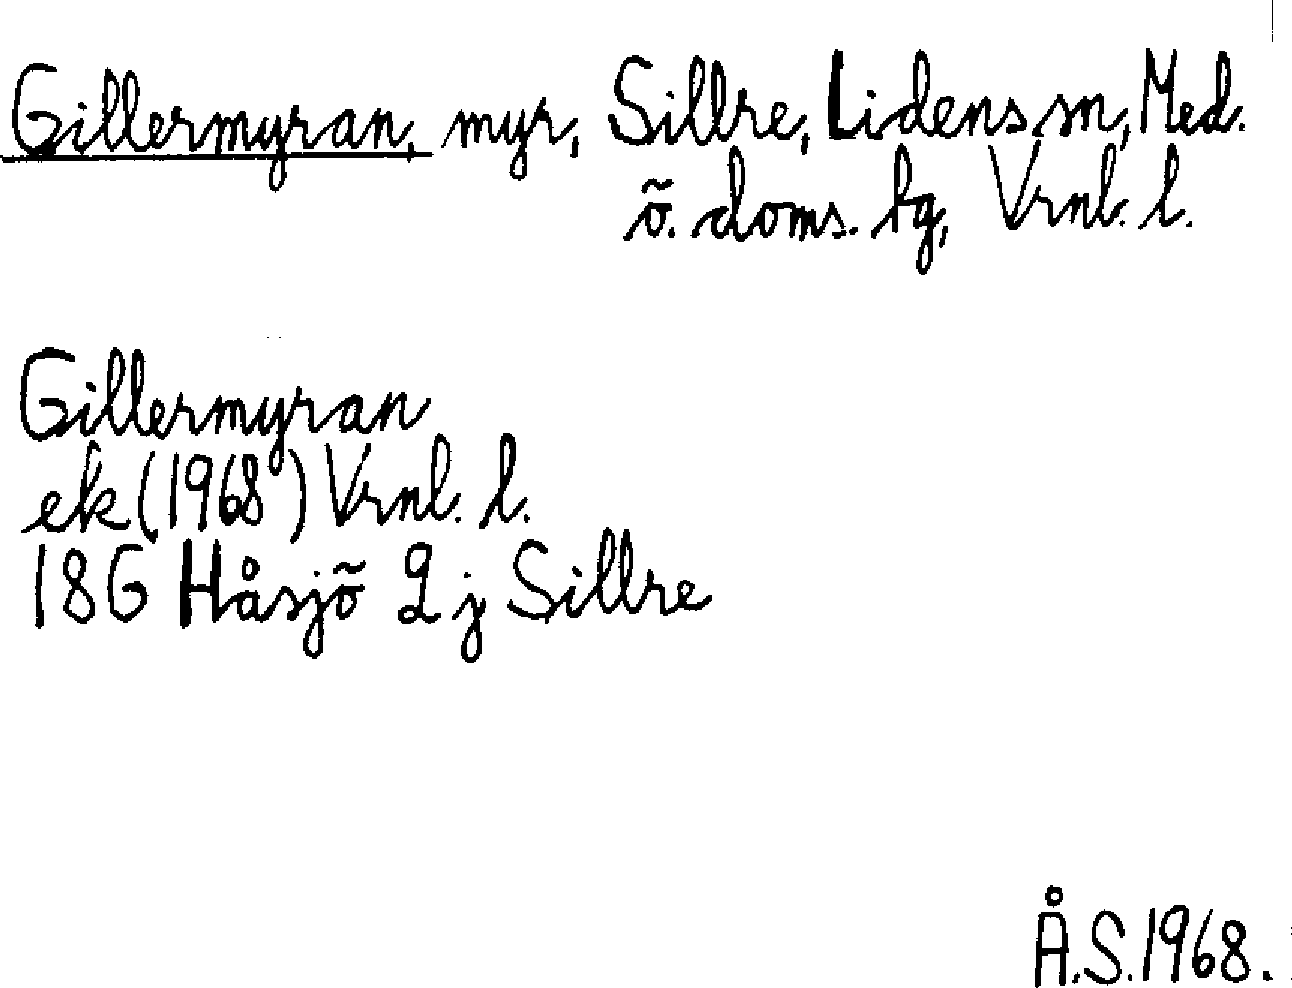 Gillermyran, myr, Sillre, Lidens sn, Med.
ö. doms. lg, Vrnl. l.
Gillermyran
ek (1968) Vrnl. l.
18G Håsjö 2 j Sillre
Å.S. 1968.